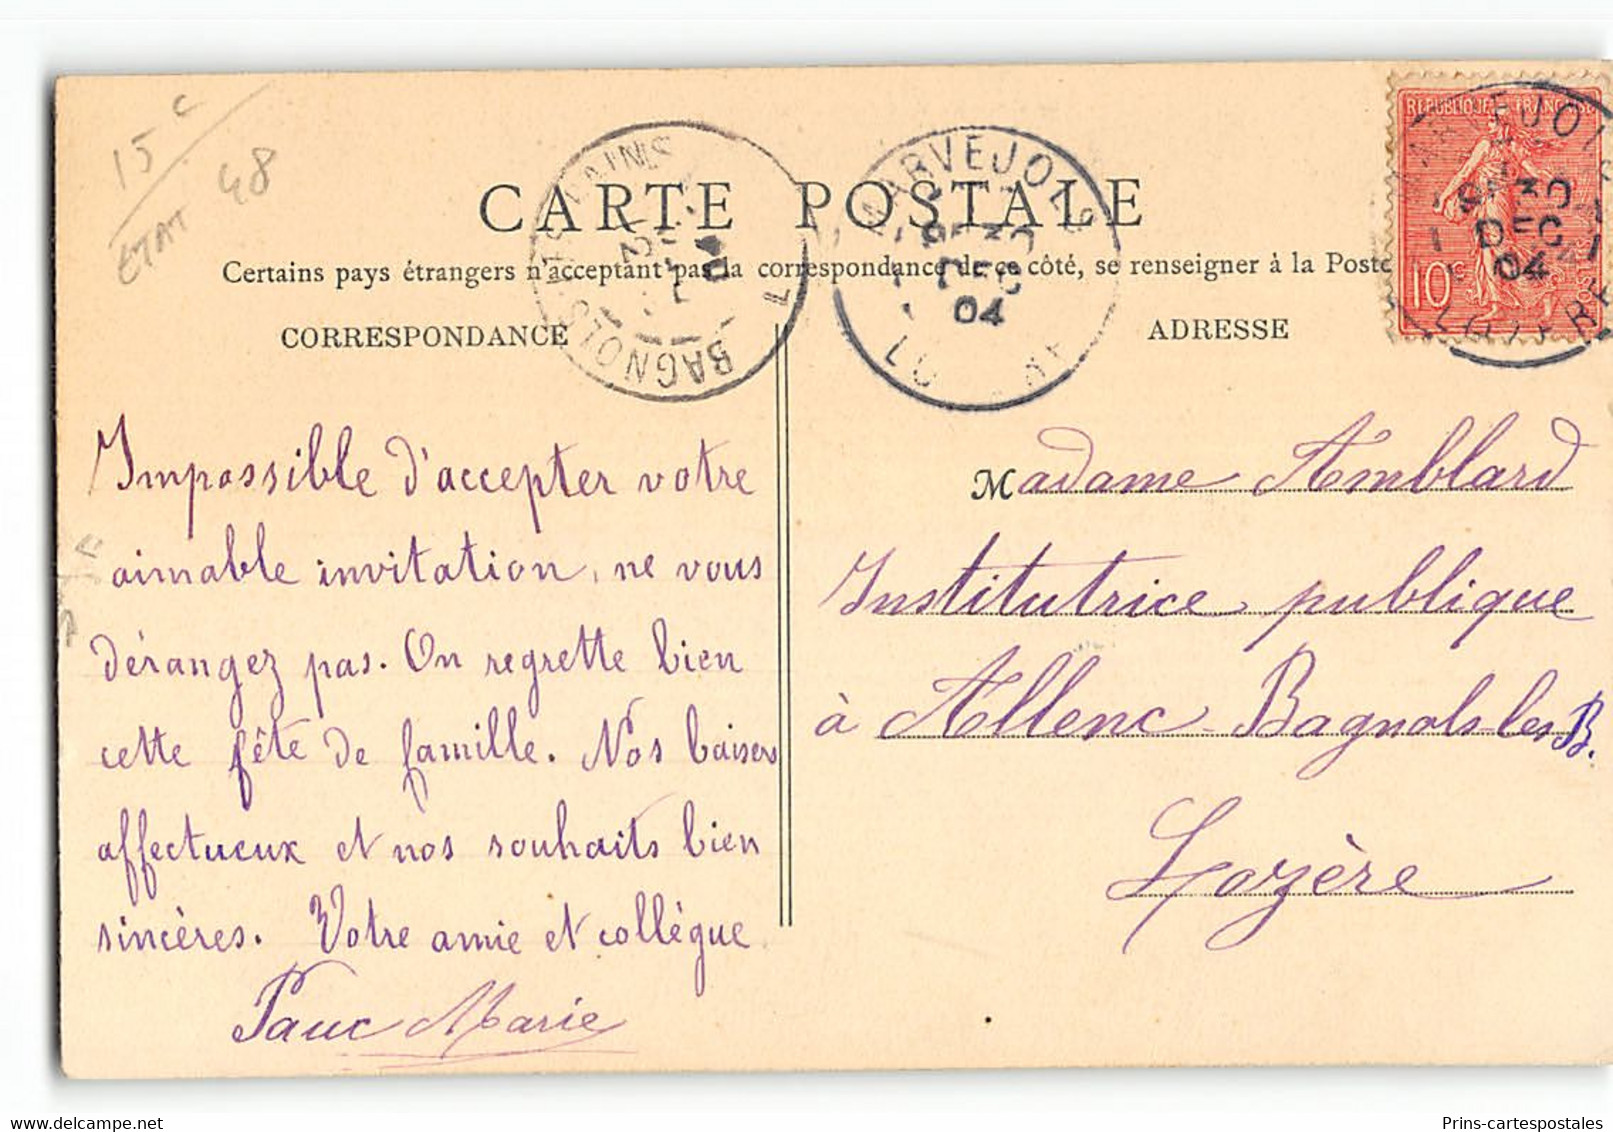 15 c
ETAT 48
CARTE POSTALE
Certains pays étrangers n'acceptant pas la correspondance de ce côté, se renseigner à la Poste
CORRESPONDANCE
ADRESSE
BAGNOLS-LES-BAINS
MARVEJOLS
30
DEC
04
LOZERE
REPUBLIQUE FRANÇAISE
10c
POSTES
MARVEJOLS
30
DEC
04
LOZERE
Impossible d'accepter votre
aimable invitation, ne vous
dérangez pas. On regrette bien
cette fête de famille. Nos baisers
affectueux et nos souhaits bien
sincères. Votre amie et collègue
Pauc Marie
Madame Amblard
Institutrice publique
à Allenc-Bagnols-les B.
Lozère
Prins-cartespostales